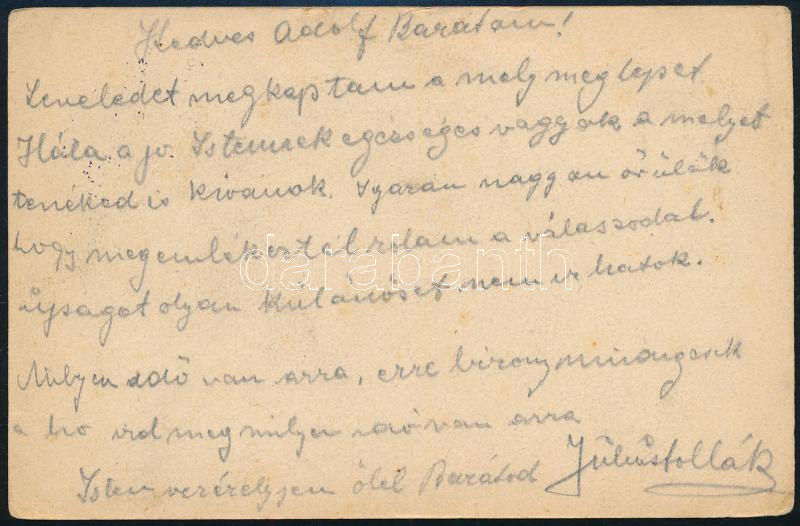 Kedves Adolf Baratom!
Leveledet megkaptam a mely meglepet
Hála a jo Istennek egeseges vagyok a melyet
tenéked is kivánok. Igazan nagyon örülök
hogy megemlékeztél rolam a válaszodal.
ujsagot olyan külünöset nem ir hatok.
Milyen idö van arra, erre bizony mindugesik
a ho ird meg milyen idö van arra
Isten vezérelyjen ölel Barátod
darabanth